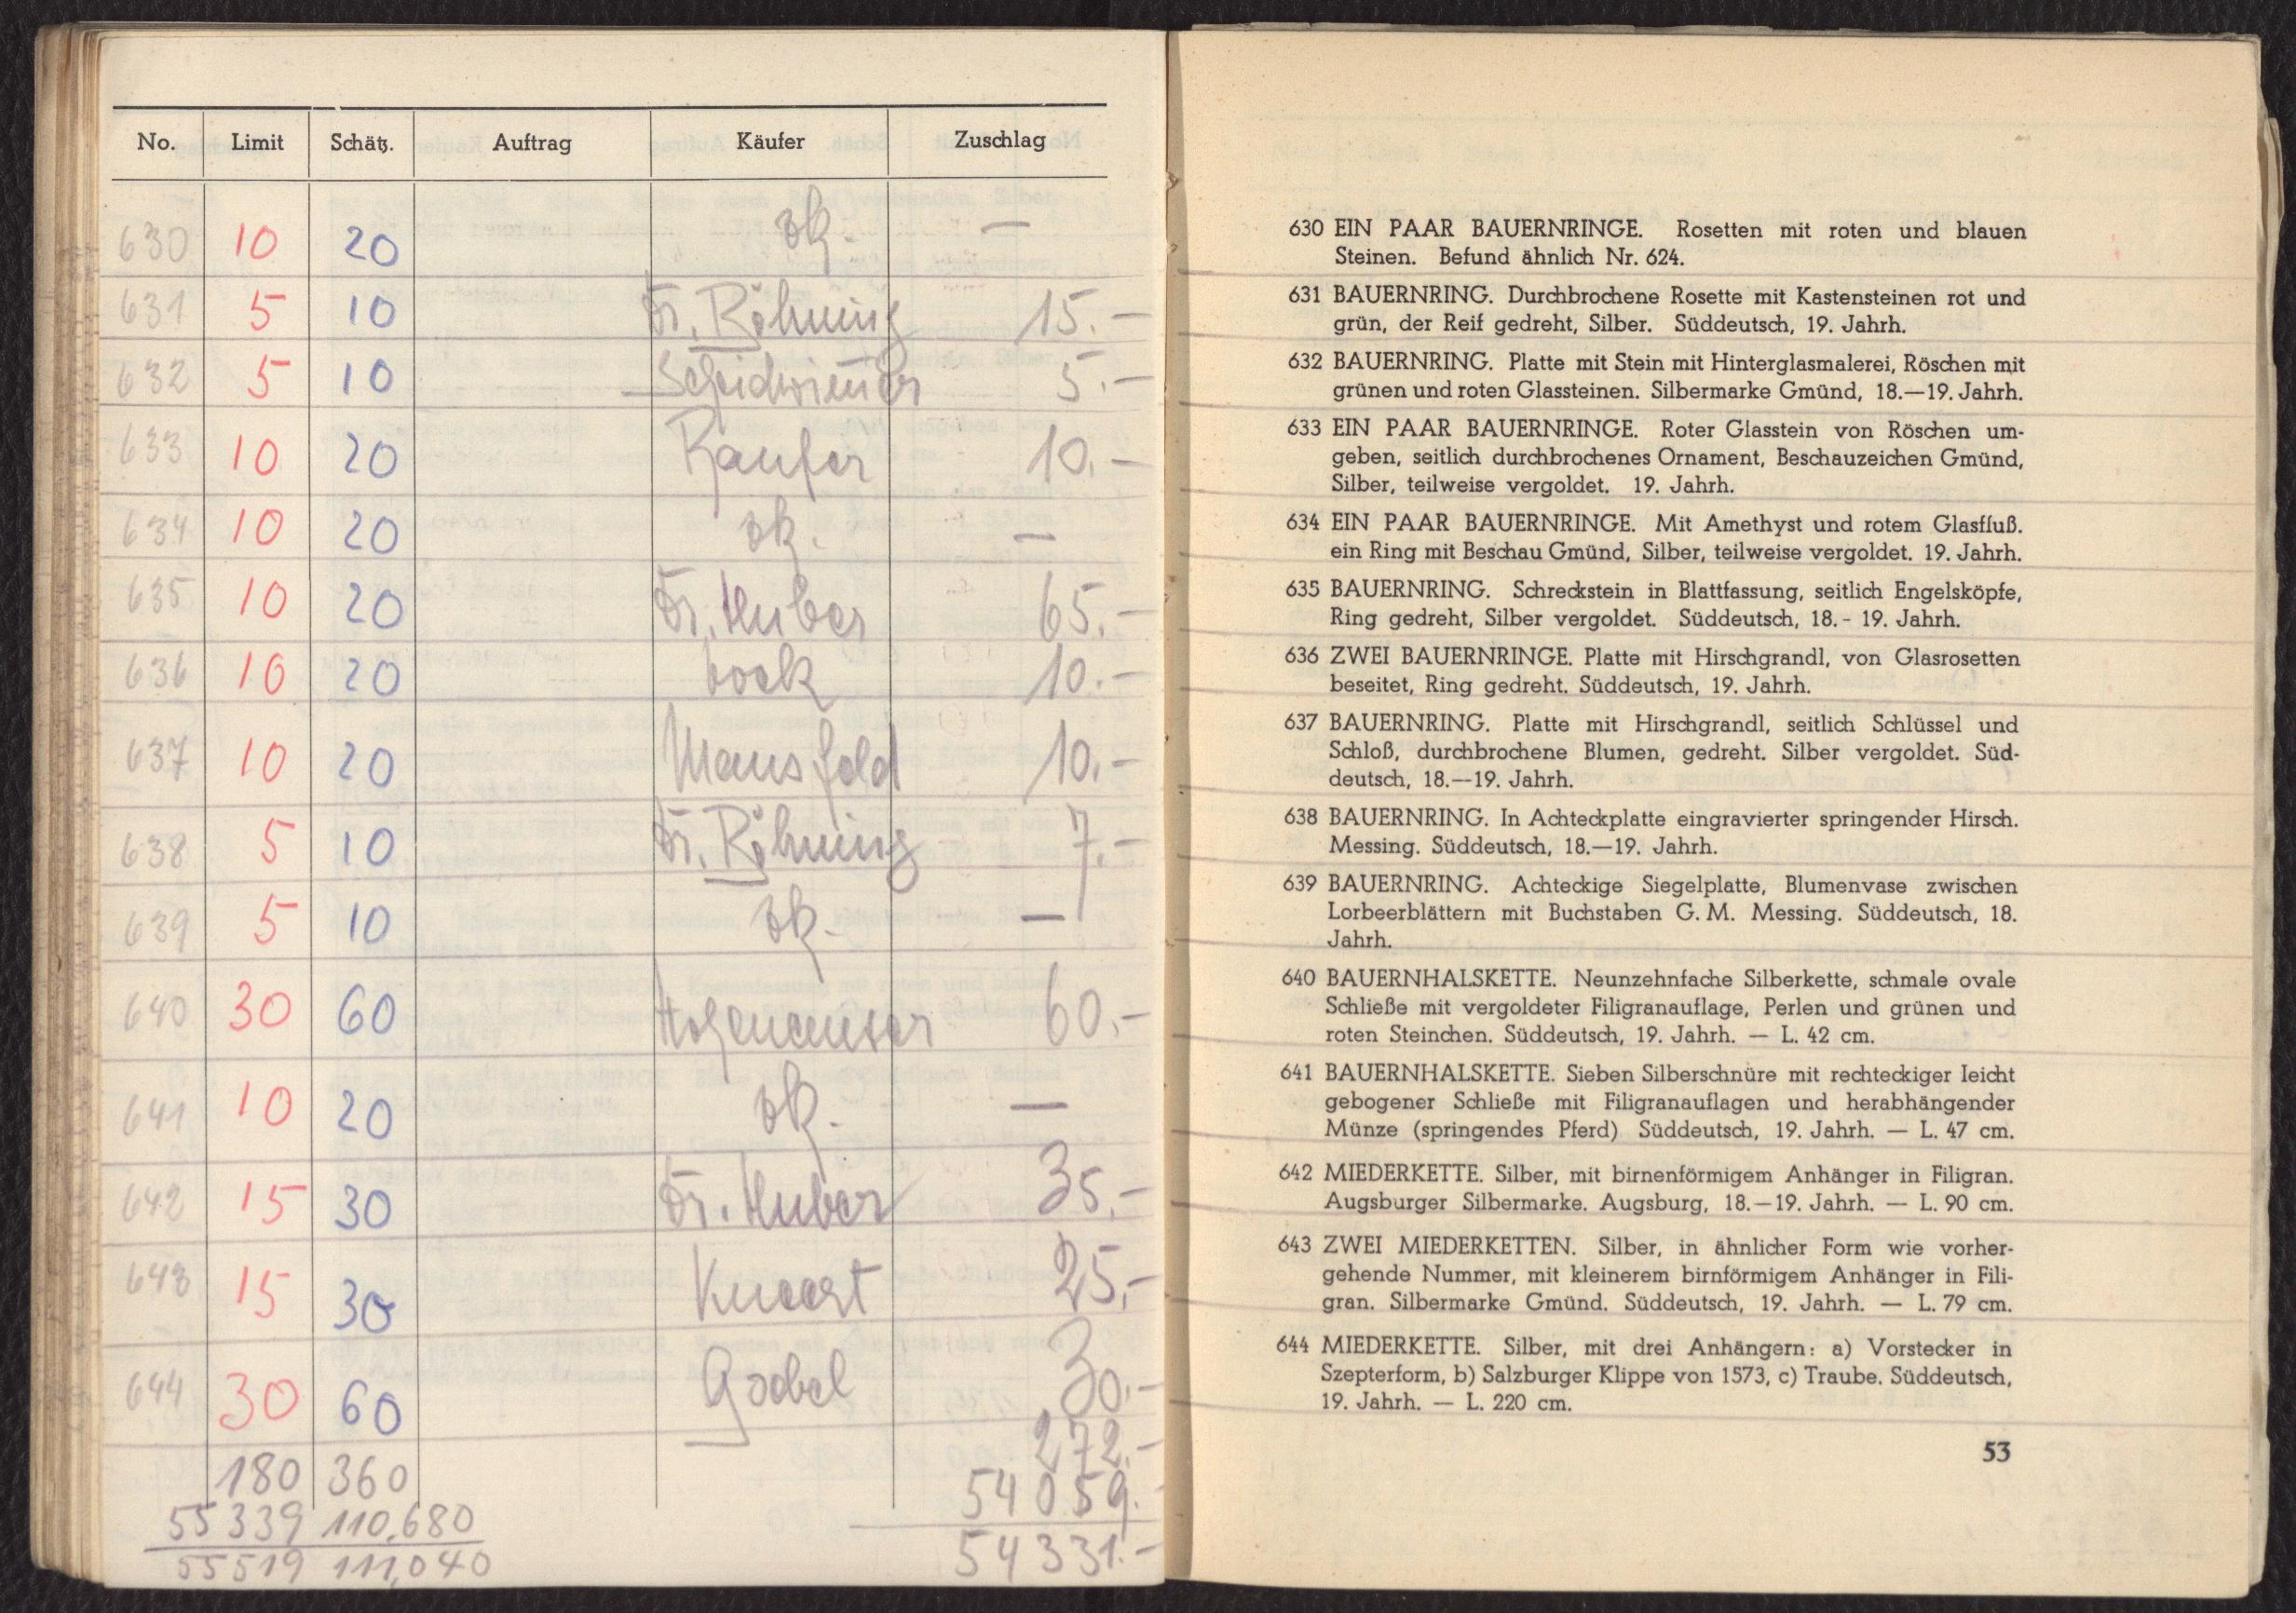 No. Limit Schätz. Auftrag Käufer Zuschlag
630 10 20 zk. —
631 5 10 Dr. Röhning 15.-
632 5 10 5.-
633 10 20 Kaufer 10.-
634 10 20 zk. —
635 10 20 Dr. Huber 65.-
636 10 20 10.-
637 10 20 Mansfeld 10.-
638 5 10 Dr. Röhning 7.-
639 5 10 zk. —
640 30 60 60.-
641 10 20 zk. —
642 15 30 Dr. Huber 35.-
643 15 30 25.-
644 30 60 Goebel 30.-
272.-
180 360 54059.-
55339 110.680
55519 111.040 54331.-
630 EIN PAAR BAUERNRINGE. Rosetten mit roten und blauen
Steinen. Befund ähnlich Nr. 624.
631 BAUERNRING. Durchbrochene Rosette mit Kastensteinen rot und
grün, der Reif gedreht, Silber. Süddeutsch, 19. Jahrh.
632 BAUERNRING. Platte mit Stein mit Hinterglasmalerei, Röschen mit
grünen und roten Glassteinen. Silbermarke Gmünd, 18.—19. Jahrh.
633 EIN PAAR BAUERNRINGE. Roter Glasstein von Röschen um-
geben, seitlich durchbrochenes Ornament, Beschauzeichen Gmünd,
Silber, teilweise vergoldet. 19. Jahrh.
634 EIN PAAR BAUERNRINGE. Mit Amethyst und rotem Glasfluß.
ein Ring mit Beschau Gmünd, Silber, teilweise vergoldet. 19. Jahrh.
635 BAUERNRING. Schreckstein in Blattfassung, seitlich Engelsköpfe,
Ring gedreht, Silber vergoldet. Süddeutsch, 18.- 19. Jahrh.
636 ZWEI BAUERNRINGE. Platte mit Hirschgrandl, von Glasrosetten
beseitet, Ring gedreht. Süddeutsch, 19. Jahrh.
637 BAUERNRING. Platte mit Hirschgrandl, seitlich Schlüssel und
Schloß, durchbrochene Blumen, gedreht. Silber vergoldet. Süd-
deutsch, 18.—19. Jahrh.
638 BAUERNRING. In Achteckplatte eingravierter springender Hirsch.
Messing. Süddeutsch, 18.—19. Jahrh.
639 BAUERNRING. Achteckige Siegelplatte, Blumenvase zwischen
Lorbeerblättern mit Buchstaben G. M. Messing. Süddeutsch, 18.
Jahrh.
640 BAUERNHALSKETTE. Neunzehnfache Silberkette, schmale ovale
Schließe mit vergoldeter Filigranauflage, Perlen und grünen und
roten Steinchen. Süddeutsch, 19. Jahrh. — L. 42 cm.
641 BAUERNHALSKETTE. Sieben Silberschnüre mit rechteckiger leicht
gebogener Schließe mit Filigranauflagen und herabhängender
Münze (springendes Pferd) Süddeutsch, 19. Jahrh. — L. 47 cm.
642 MIEDERKETTE. Silber, mit birnenförmigem Anhänger in Filigran.
Augsburger Silbermarke. Augsburg, 18.—19. Jahrh. — L. 90 cm.
643 ZWEI MIEDERKETTEN. Silber, in ähnlicher Form wie vorher-
gehende Nummer, mit kleinerem birnförmigem Anhänger in Fili-
gran. Silbermarke Gmünd. Süddeutsch, 19. Jahrh. — L. 79 cm.
644 MIEDERKETTE. Silber, mit drei Anhängern: a) Vorstecker in
Szepterform, b) Salzburger Klippe von 1573, c) Traube. Süddeutsch,
19. Jahrh. — L. 220 cm.
53